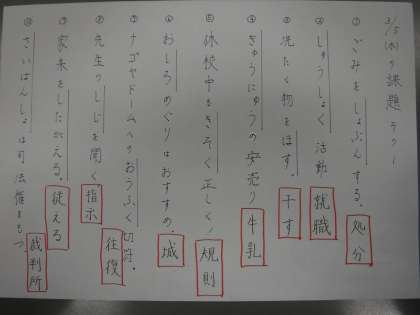 3/5(木)の課題
① ごみをしょぶんする。処分
② しゅうしょく活動 就職
③ 洗たく物をほす。干す
④ ぎゅうにゅうの安売り 牛乳
⑤ 休校中もきそく正しく! 規則
⑥ おしろめぐりはおすすめ。城
⑦ ナゴヤドームへのおうふく切符。往復
⑧ 先生のしじを聞く。指示
⑨ 家来をしたがえる。従える
⑩ さいばんしょは司法権をもつ。裁判所